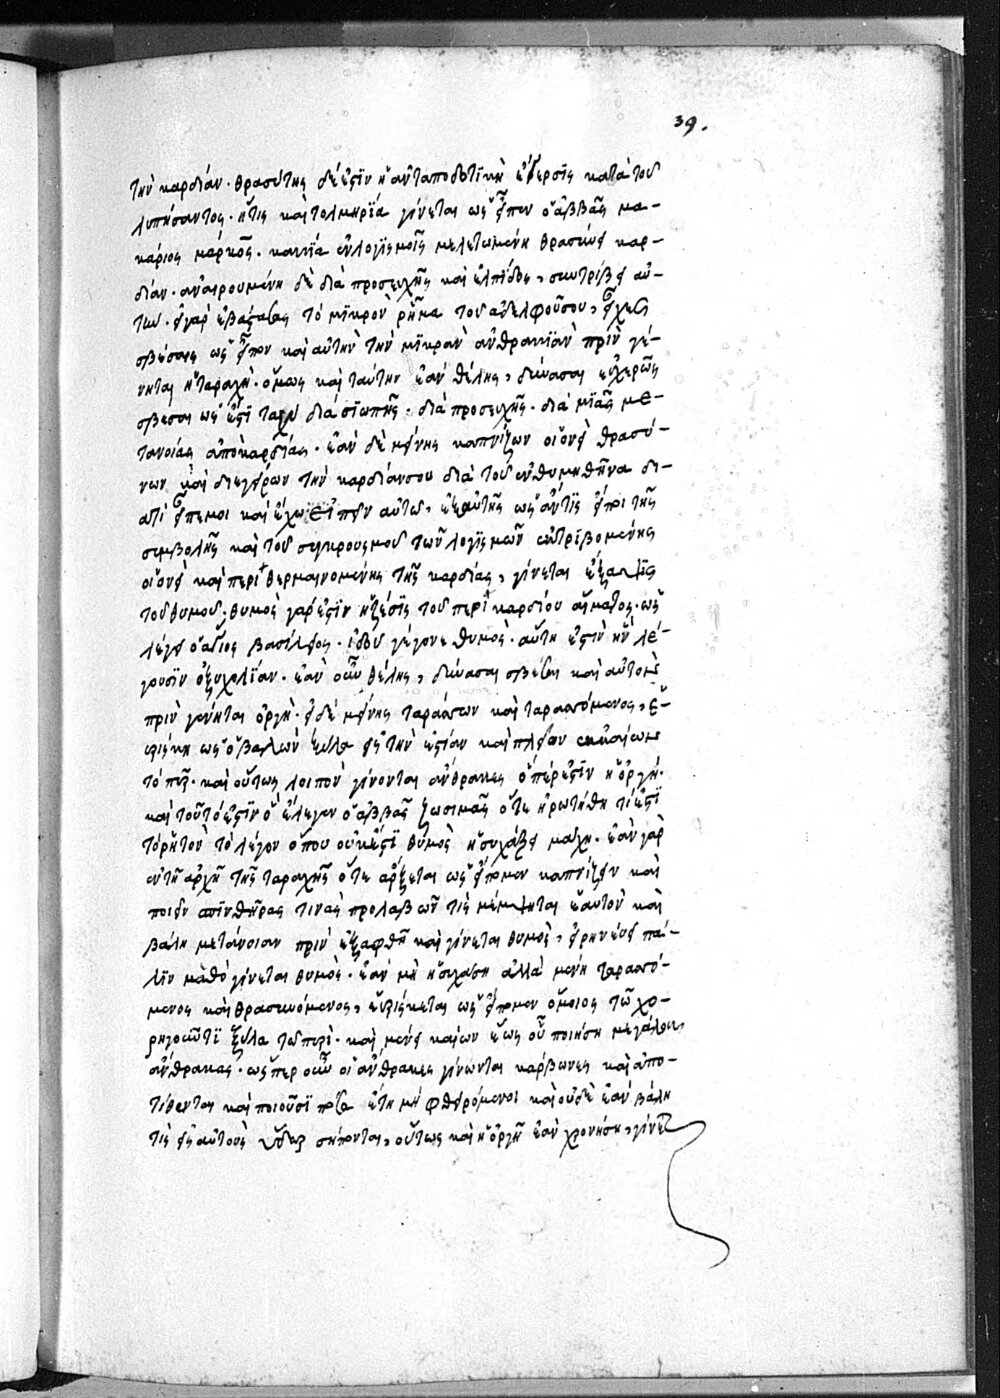 39.
τὴν καρδίαν· θρασύτης δέ ἐστϊν ἡ ἀνταποδοτϊκὴ ἔγερσϊς κατὰ τοῦ
λυπήσαντος· ἥτις καὶ τολμηρϊά γίνεται ὡς εἶπεν ὁ ἀββᾶς μα-
κάριος μάρκος· κακϊά ἐν λογϊσμοῖς μελετωμένη θρασύνει καρ-
δίαν· ἀναιρουμένη δὲ διὰ προσευχῆς καὶ ἐλπίδος, συντρίβει αὐ-
τήν· εἰ γὰρ ἐβάστασας τὸ μϊκρὸν ῥῆμα τοῦ ἀδελφοῦ σου, εἶχες
σβέσαι ὡς εἶπον καὶ αὐτὴν τὴν μϊκρὰν ἀνθρακϊὰν πρὶν γέ-
νηται ἡ ταραχή· ὅμως καὶ ταύτην ἐὰν θέλης, δύνασαι εὐχερῶς
σβέσαι ὡς ἔτϊ ταχὺ διὰ σϊωπῆς· διὰ προσευχῆς· διὰ μϊᾶς με-
τανοίας ἀπὸ καρδίας· ἐὰν δὲ μείνης καπνίζων οἱονεὶ θρασύ-
νων καὶ διεγείρων τὴν καρδίαν σου διὰ τοῦ ἐνθυμηθῆναι δι-
ατί εἶπέ μοι καὶ ἔχω εἰπεῖν αὐτῶ, ἐξ αὐτῆς ὡς ἄν τϊς εἴποι τῆς
συμβολῆς καὶ τοῦ συγκρουσμοῦ τῶν λογϊσμῶν ἐκτριβομένης
οἱονεὶ καὶ περιθερμαινομένης τῆς καρδίας, γίνεται ἔξαψϊς
τοῦ θυμοῦ· θυμὸς γάρ ἐστϊν ἡ ζέσϊς τοῦ περικαρδίου αἵματος· ὡς
λέγει ὁ ἅγιος βασίλειος· ἰδοὺ γέγονε θυμὸς· αὕτη ἐστὶν ἣν λέ-
γουσϊν ὀξυχολίαν· ἐὰν οὖν θέλης, δύνασαι σβέσαι καὶ αὐτὸν
πρὶν γένηται ὀργὴ· εἰ δὲ μείνης ταράσσων καὶ ταρασσόμενος, εὑ-
ρίσκη ὡς ὁ βαλὼν ξύλα εἰς τὴν ἑστίαν καὶ πλεῖον ἐκκαίων
τὸ πῦρ· καὶ οὕτως λοιπὸν γίνονται ἄνθρακες ὅπέρ ἐστϊν ἡ ὀργὴ·
καὶ τοῦτό ἐστϊν ὃ ἔλεγεν ὁ ἀββᾶς ζωσιμᾶς ὅτε ἠρωτήθη τί ἐστϊ
τὸ ῥητὸν τὸ λέγον ὅπου οὐκ ἔστϊ θυμὸς ἡσυχάζει μάχη· ἐὰν γὰρ
ἐν τῆ ἀρχῆ τῆς ταραχῆς ὅτε ἄρξεται ὡς εἴπομεν καπνίζειν καὶ
ποιεῖν σπϊνθῆρας τινὰς προλαβών τις μέμψηται ἑαυτὸν καὶ
βάλη μετάνοιαν πρὶν ἐξαφθῆ καὶ γίνεται θυμὸς, εἰρηνεύει πά-
λϊν ἀφ' οὗ γίνεται θυμὸς· ἐὰν μὴ ἡσυχάση ἀλλὰ μένη ταρασσό-
μενος καὶ θρασυνόμενος, εὑρίσκεται ὡς εἴπομεν ὅμοιος τῶ χο-
ρηγοῦντϊ ξύλα τῶ πυρὶ· καὶ μένει καίων ἕως οὗ ποιήση μεγάλους
ἄνθρακας· ὥσπερ οὖν οἱ ἄνθρακες γίνονται κάρβωνες καὶ ἀπο-
τίθενται καὶ ποιοῦσϊ πόσα ἔτη μὴ φθειρόμενοι καὶ οὐδὲ ἐὰν βάλη
τὶς εἰς αὐτοὺς ὕδωρ σήπονται, οὕτως καὶ ἡ ὀργὴ ἐὰν χρονήση, γίνεται